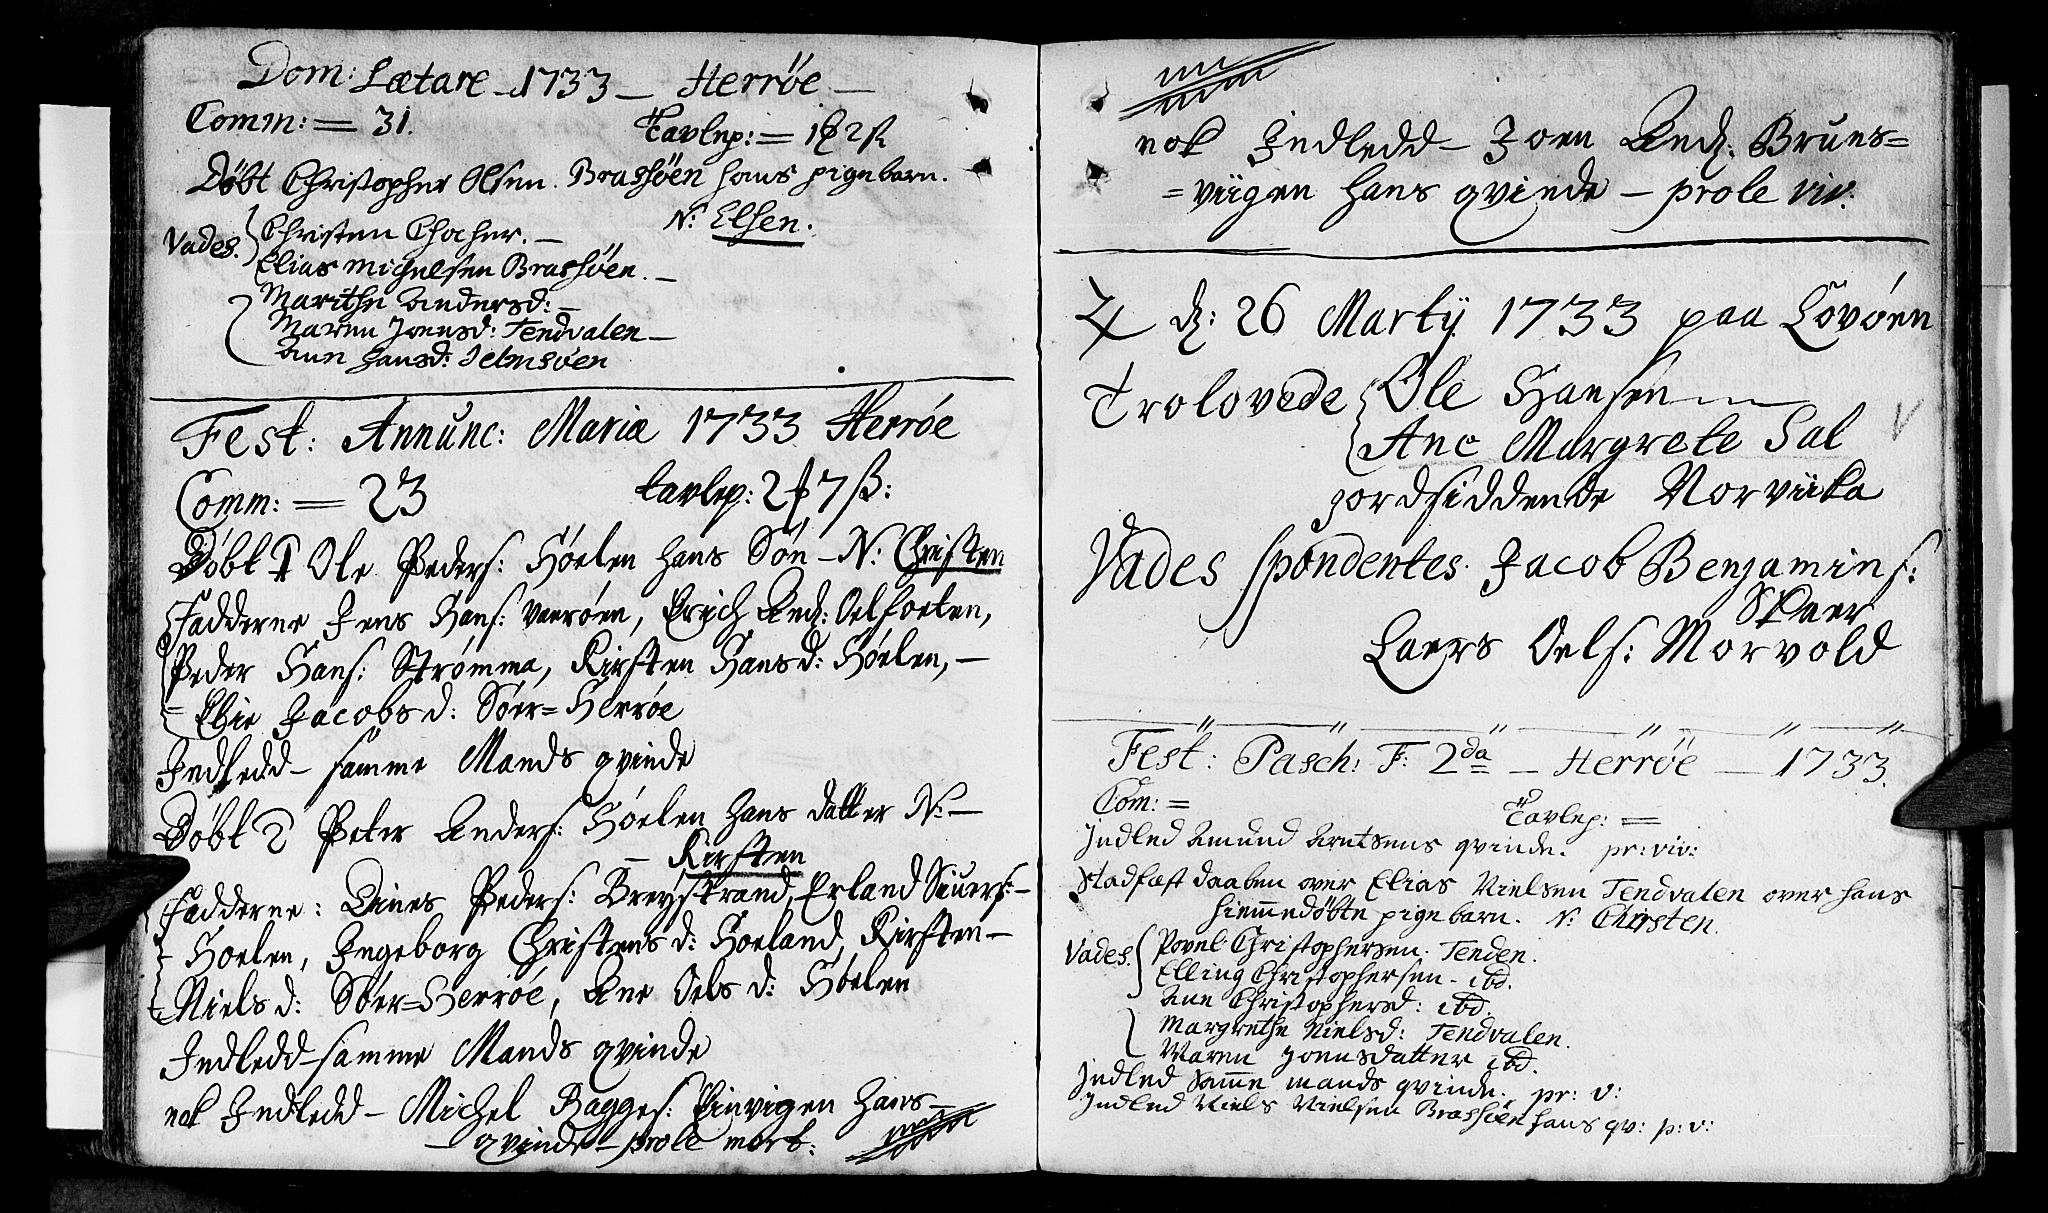 Dom: Lætare - 1733 - Herrøe -
Comm: = 31. Tavlep: = 1 2 ß
Døbt Christopher Olsen. Brasøen hans pigebarn.
N: Elsen.
Vades. Christen Choher. -
Elias Michelsen Brasøen. -
Marithe Andersd: -
Maren Joensd: Tendvalen -
Ann Hansd: Jelmsøen
Fest: Annunc: Mariæ 1733 Herrøe
Comm: = 23 tavlep: 2 7 ß:
Døbt 1 Ole Peders: Høelen hans Søn - N: Christen
Fadderne Jens Hans: Værøen, Erich And: Oelfoeten,
Peder Hans: Strømma, Kirsten Hansd: Høelen, -
= Jacobsd: Søer=Herrøe
Indledd - samme Mands qvinde
Døbt 2 Peter Anders: Høelen hans datter N: -
- Kirsten
Fadderne: Dines Peders: Breystrand, Erland Siuers: -
Hoelen, Ingeborg Christensd: Hoeland, Kirsten -
Nielsd: Søer=Herrøe, Ane Oelsd: Høelen
Indledd - samme Mands qvinde
nok Indledd - Michel Bagges: hans -
- qvinde - prole mort:
nok Indledd - Joen And: Bruns=
=viigen hans qvinde - prole viv:
d: 26 Martij 1733 paa Løvøen
Trolovede Ole Hansen
Ane Margrete Sal
jordsiddende Norviika
Vades spondentes. Jacob Benjamins:
Skaer
Laers Oels: Morvold
Fest: Pasch: F: 2da - Herrøe - 1733.
Com: = Tavlep: =
Indled Amund Arntsens qvinde. pr: viv:
Stadfæst daaben over Elias Nielsen Tendvalen over hans
hiemmedøbte pigebarn. N: Chirsten.
Vades. Povel Christophersen. Tenden.
Elling Christophersen - ibd.
Ann Christophersd: ibd.
Margrethe Nielsd: Tendvalen.
Maren Joensdatter ibd.
Indled Samme mands qvinde. pr: v:
Indled Niels Nielsen Brasøen hans qv: p: v: